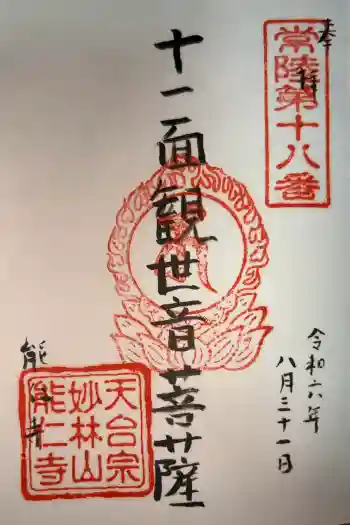 奉拝
常陸第十八番
令和六年
八月三十一日
十一面観世音菩薩
能仁寺
天台宗
妙林山
能仁寺